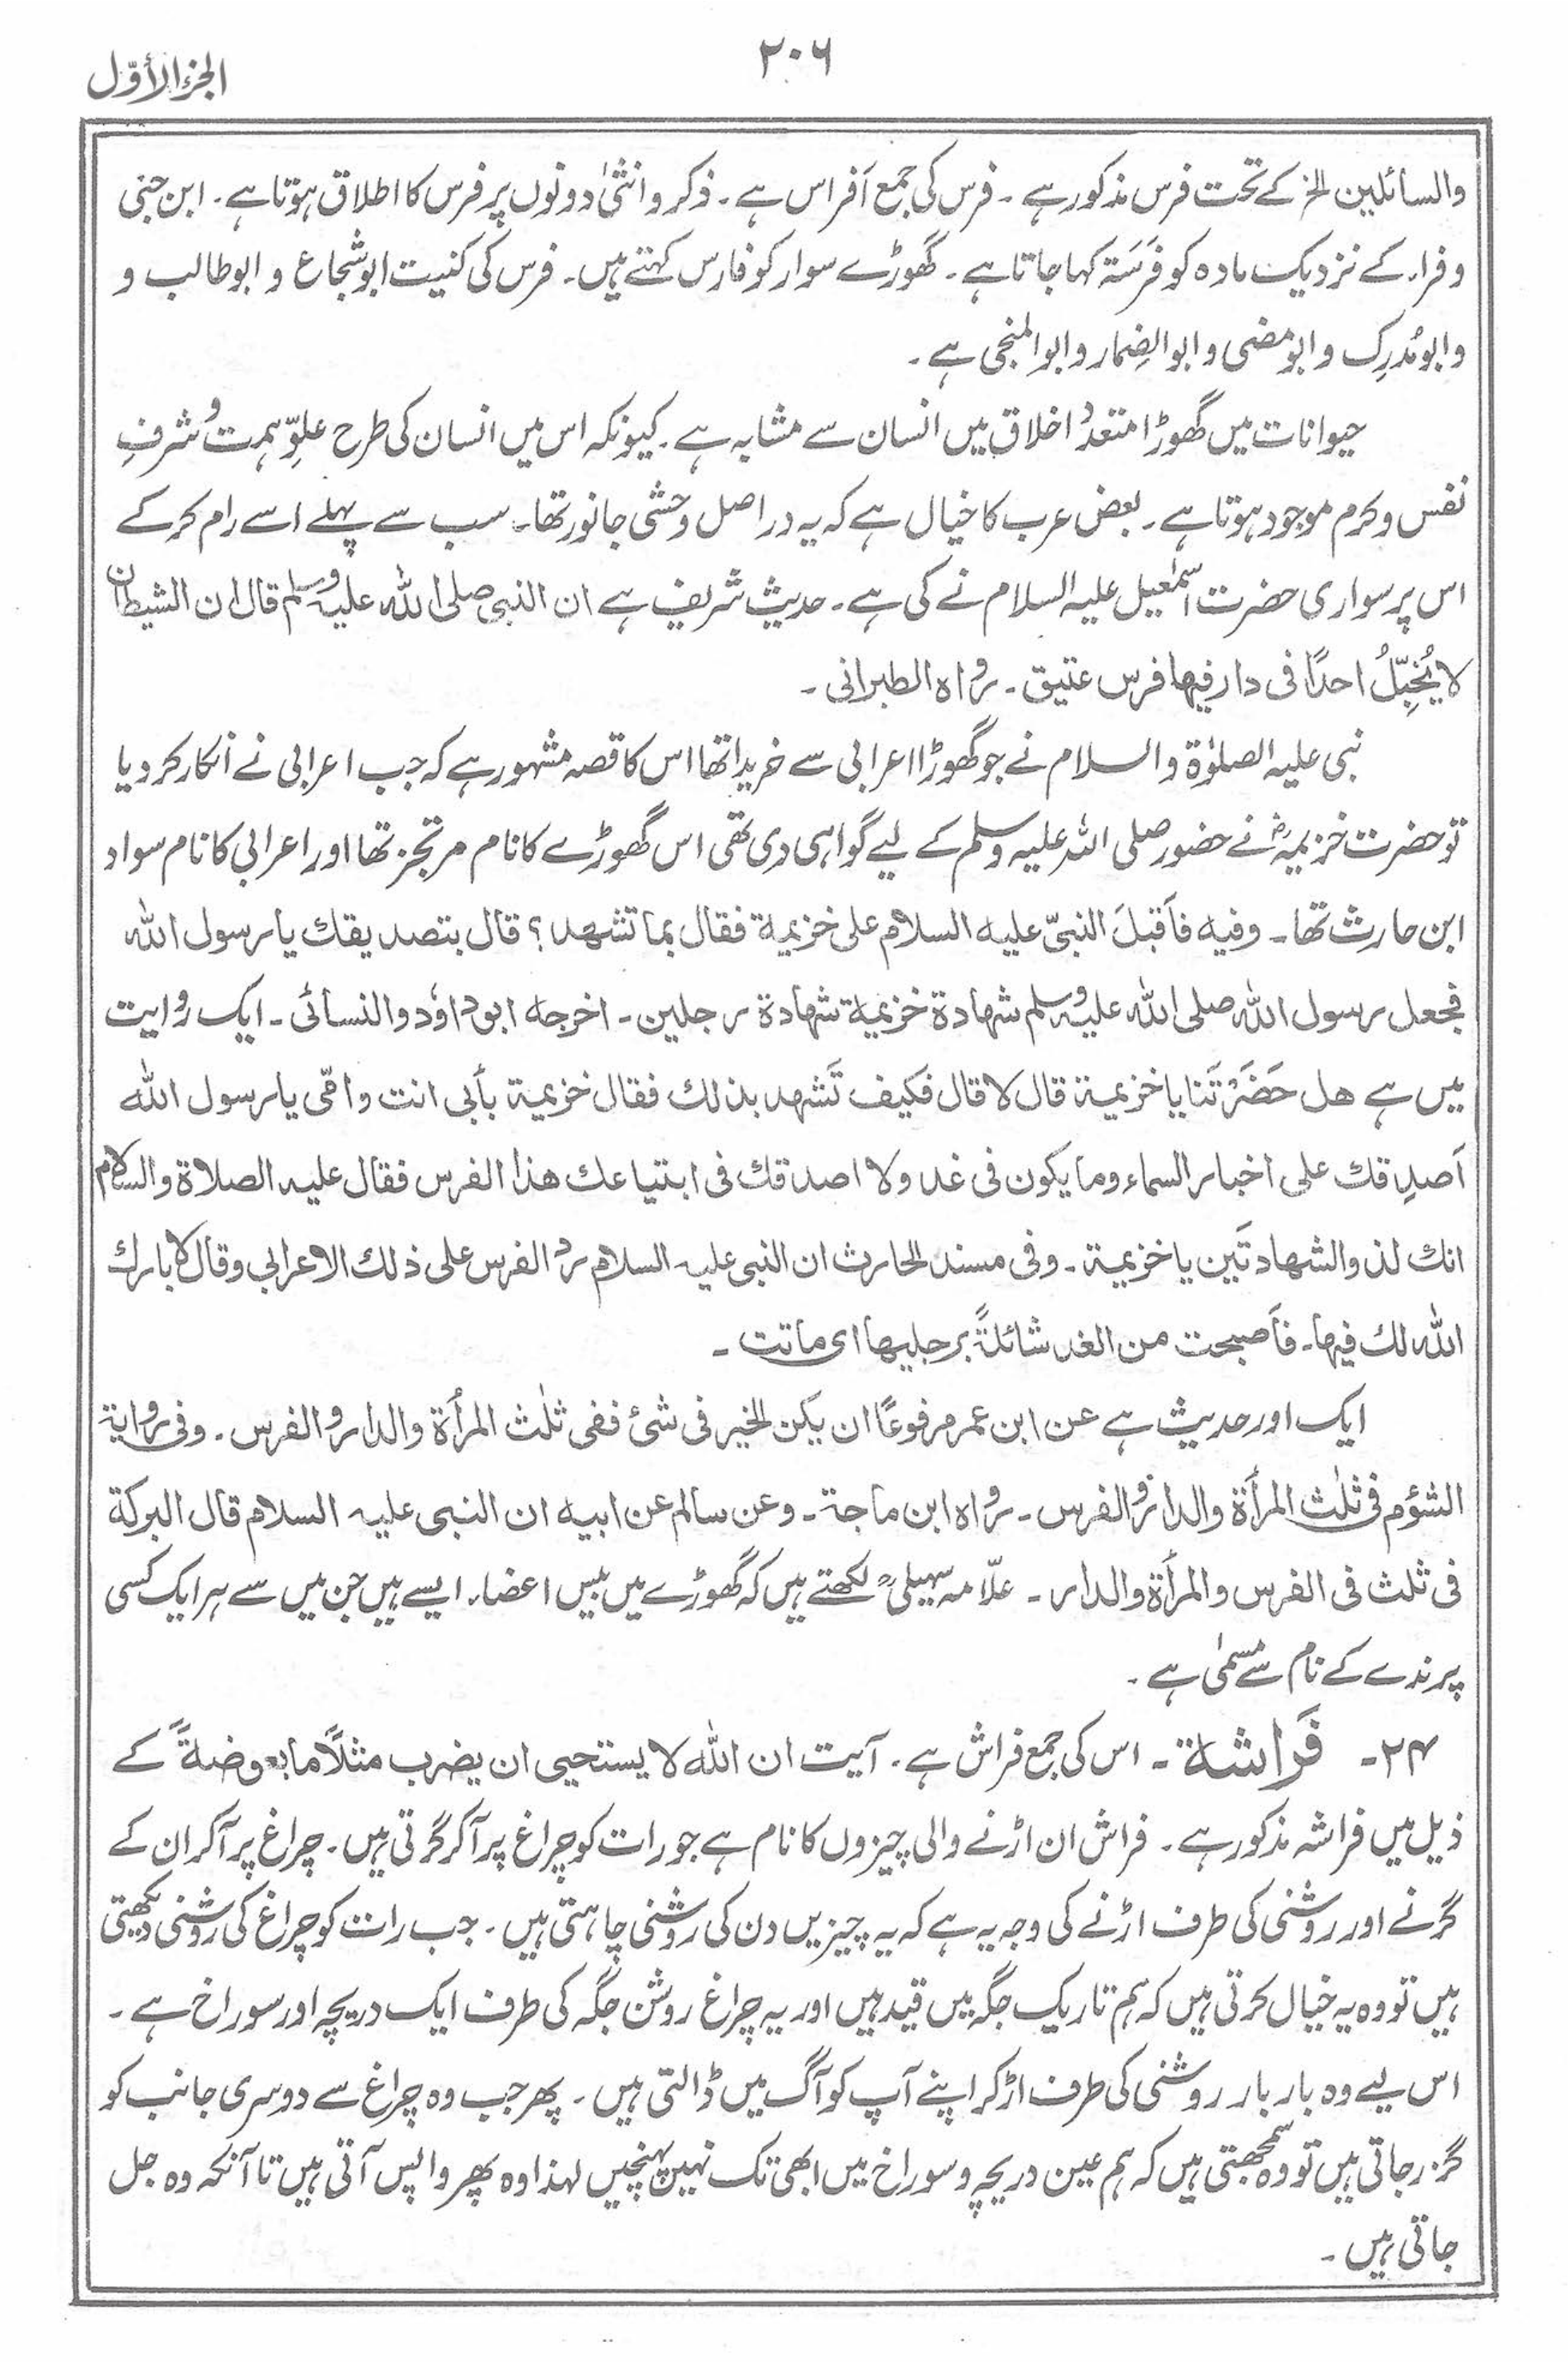 الجزء الأوّل
۲۰۶
والسائلین الخ کے تحت فرس مذکور ہے ۔ فرس کی جمع اَفراس ہے ۔ ذکر و انثیٰ دونوں پر فرس کا اطلاق ہوتا ہے ۔ ابن جنی
و فراء کے نزدیک مادہ کو فَرَسَۃ کہا جاتا ہے ۔ گھوڑے سوار کو فارس کہتے ہیں ۔ فرس کی کنیت ابوشجاع و ابوطالب و
وابومُدرِک و ابومضی و ابوالضِمار و ابوالمنجی ہے ۔
حیوانات میں گھوڑا متعدد اخلاق میں انسان سے مشابہ ہے ۔ کیونکہ اس میں انسان کی طرح علوِّ ہمت و شرفِ
نفس و کرم موجود ہوتا ہے ۔ بعض عرب کا خیال ہے کہ یہ دراصل وحشی جانور تھا ۔ سب سے پہلے اسے رام کرکے
اس پر سواری حضرت اسمٰعیل علیہ السلام نے کی ہے ۔ حدیث شریف ہے ان النبی صلی اللہ علیہ وسلم قال ان الشیطان
لا یُخبِّلُ احدًا فی دار فیھا فرس عتیق ۔ رواہ الطبرانی ۔
نبی علیہ الصلوٰۃ والسلام نے جو گھوڑا اعرابی سے خریدا تھا اس کا قصہ مشہور ہے کہ جب اعرابی نے انکار کر دیا
تو حضرت خزیمہؓ نے حضور صلی اللہ علیہ وسلم کے لیے گواہی دی تھی اس گھوڑے کا نام مرتجز تھا اور اعرابی کا نام سواد
ابن حارث تھا ۔ وفیه فاَقبلَ النبیّ علیه السلام علی خزیمة فقال بما تشهد؟ قال بتصدیقك یا رسول الله
فجعل رسول الله صلی الله علیه وسلم شهادة خزیمة شهادة رجلین ۔ اخرجه ابوداؤد والنسائی ۔ ایک روایت
میں ہے هل حَضَرْتَنا یا خزیمة قال لا قال فکیف تَشهد بذلك فقال خزیمة بأبی انت وامّی یا رسول الله
اَصدِقك علی اخبار السماء وما یکون فی غد ولا اصدقك فی ابتیاعك هذا الفرس فقال علیه الصلاة والسلام
انك لذو الشهادتَین یا خزیمة ۔ وفی مسند الحارث ان النبی علیه السلام رد الفرس علی ذلك الاعرابی وقال لا بارك
الله لك فیها ۔ فاَصبحت من الغد شائلةً برجلیها ای ماتت ۔
ایک اور حدیث ہے عن ابن عمر مرفوعًا ان یکن الخیر فی شئ ففی ثلٰث المرأة والدار والفرس ۔ وفی روایة
الشؤم فی ثلٰث المرأة والدار والفرس ۔ رواہ ابن ماجة ۔ وعن سالم عن ابیه ان النبی علیه السلام قال البرکة
فی ثلث فی الفرس والمرأة والدار ۔ علّامہ سہیلیؒ لکھتے ہیں کہ گھوڑے میں بیس اعضاء ایسے ہیں جن میں سے ہر ایک کسی
پرندے کے نام سے مسمیٰ ہے ۔
۲۴ ۔ فَراشة ۔ اس کی جمع فراش ہے ۔ آیت ان الله لا یستحیی ان یضرب مثلًا ما بعوضةً کے
ذیل میں فراشہ مذکور ہے ۔ فراش ان اڑنے والی چیزوں کا نام ہے جو رات کو چراغ پر آکر گرتی ہیں ۔ چراغ پر آکر ان کے
گرنے اور روشنی کی طرف اڑنے کی وجہ یہ ہے کہ یہ چیزیں دن کی روشنی چاہتی ہیں ۔ جب رات کو چراغ کی روشنی دیکھتی
ہیں تو وہ یہ خیال کرتی ہیں کہ ہم تاریک جگہ میں قید ہیں اور یہ چراغ روشن جگہ کی طرف ایک دریچہ اور سوراخ ہے ۔
اس لیے وہ بار بار روشنی کی طرف اڑ کر اپنے آپ کو آگ میں ڈالتی ہیں ۔ پھر جب وہ چراغ سے دوسری جانب کو
گزر جاتی ہیں تو وہ سمجھتی ہیں کہ ہم عین دریچہ و سوراخ میں ابھی تک نہیں پہنچیں لہذا وہ پھر واپس آتی ہیں تا آنکہ وہ جل
جاتی ہیں ۔